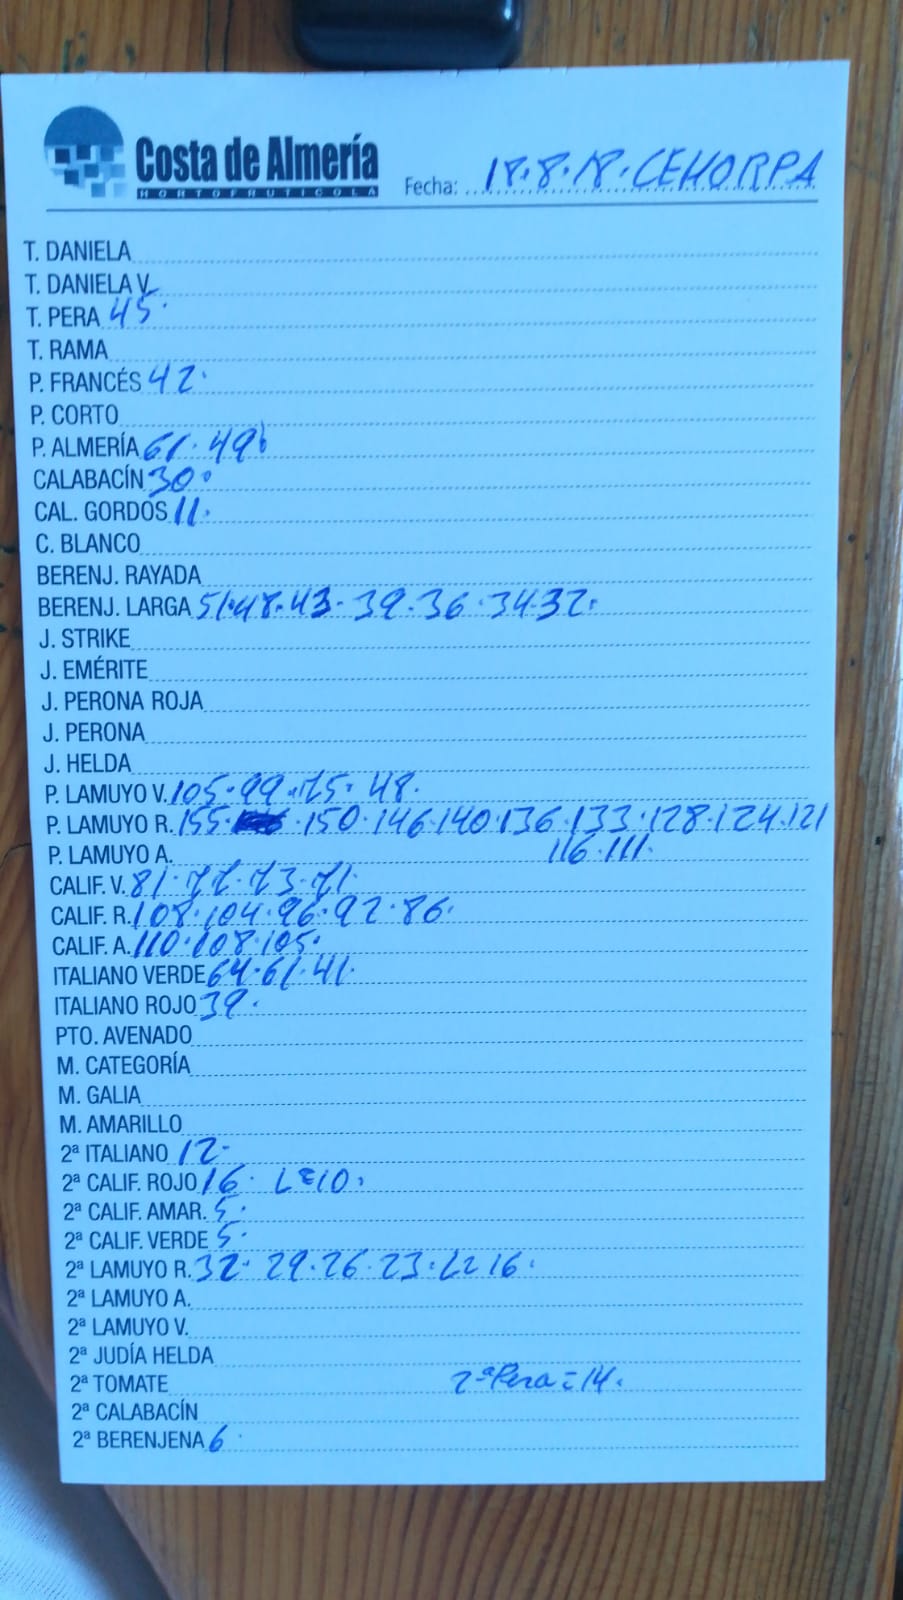 Costa de Almería
HORTOFRUTICOLA
Fecha: 18.8.18. CEHORPA
T. DANIELA
T. DANIELA V.
T. PERA 45.
T. RAMA
P. FRANCÉS 42.
P. CORTO
P. ALMERÍA 61. 49
CALABACÍN 30.
CAL. GORDOS 11.
C. BLANCO
BERENJ. RAYADA
BERENJ. LARGA 51.48.43.39.36.34.32.
J. STRIKE
J. EMÉRITE
J. PERONA ROJA
J. PERONA
J. HELDA
P. LAMUYO V. 105.99.75.48.
P. LAMUYO R. 155. 150.146.140.136.133.128.124.121
P. LAMUYO A. 116.111.
CALIF. V. 81.77.73.71.
CALIF. R. 108.104.96.92.86.
CALIF. A. 110.108.105.
ITALIANO VERDE 64.61.41.
ITALIANO ROJO 39.
PTO. AVENADO
M. CATEGORÍA
M. GALIA
M. AMARILLO
2ª ITALIANO 12.
2ª CALIF. ROJO 16. L=10.
2ª CALIF. AMAR. 5.
2ª CALIF. VERDE 5.
2ª LAMUYO R. 32. 29.26.23.22 16.
2ª LAMUYO A.
2ª LAMUYO V.
2ª JUDÍA HELDA
2ª TOMATE 2ª Pera=14.
2ª CALABACÍN
2ª BERENJENA 6.